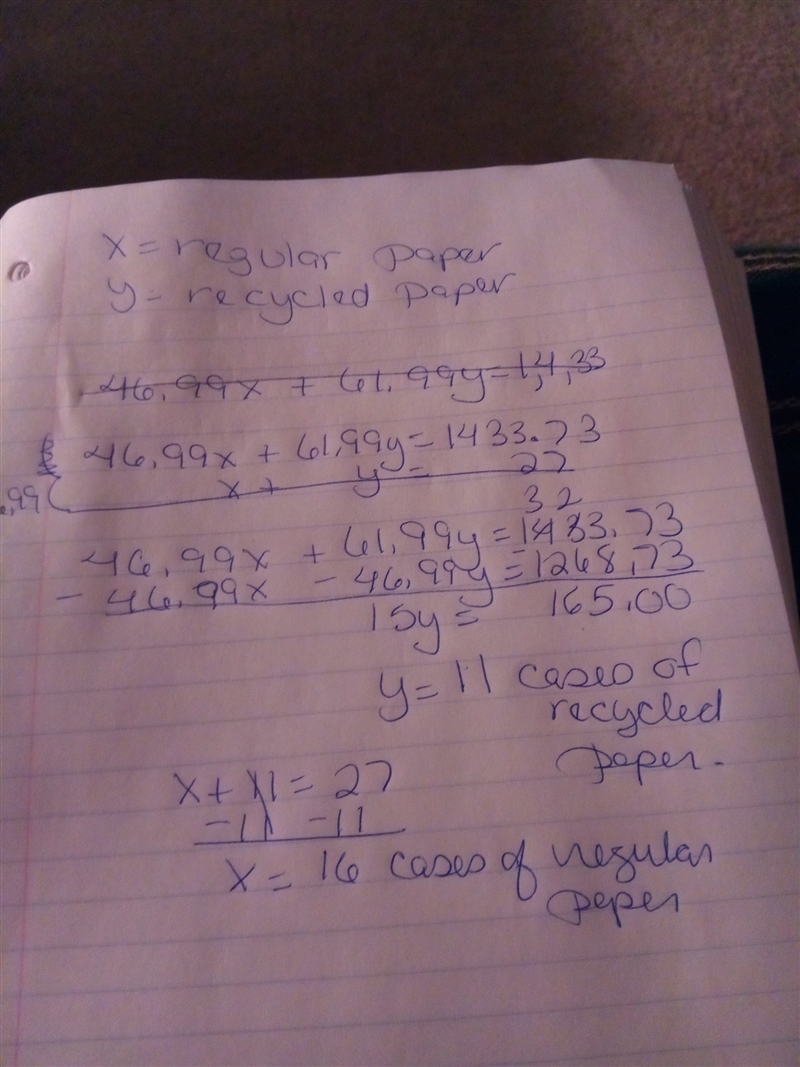 x = regular paper
y = recycled paper
46.99x + 61.99y = 1,4,33
46.99x + 61,99y = 1433.73
,99( x + y = 27
32
46.99x + 61,99y = 1433.73
- 46.99x - 46,99y = 1268,73
15y = 165.00
y = 11 cases of
recycled
paper.
x + 11 = 27
-11 -11
x = 16 cases of regular
peper